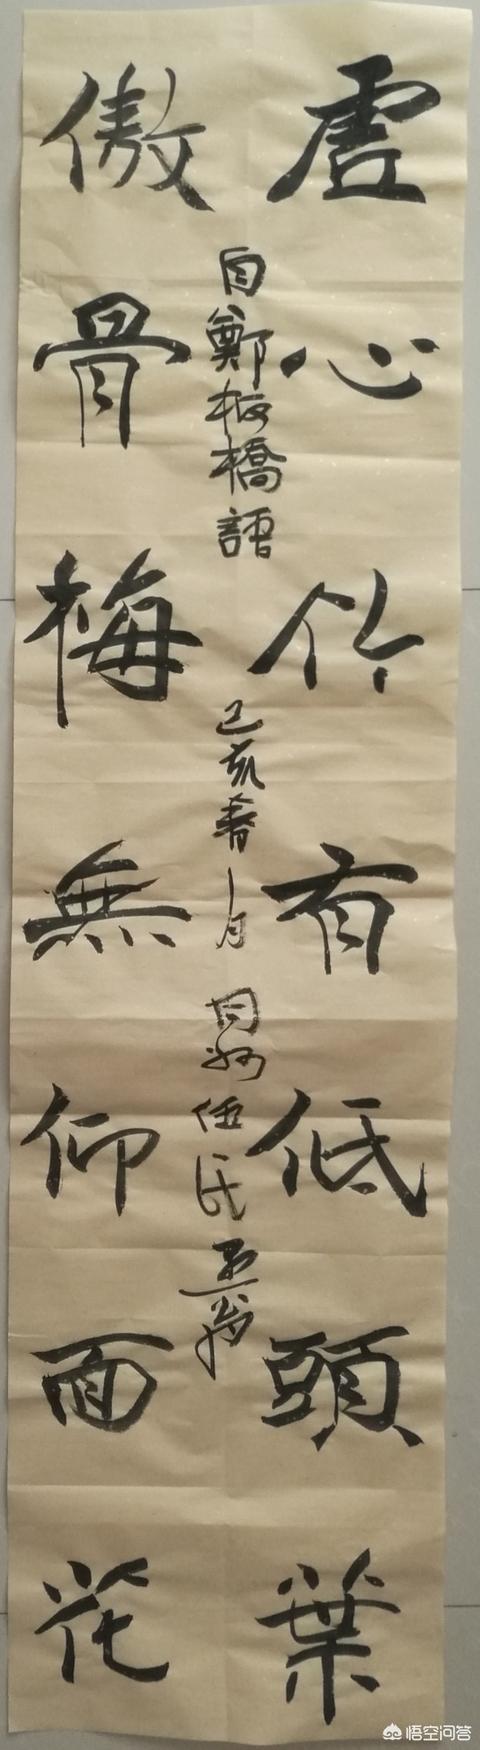 虚心竹有低頭葉
傲骨梅無仰面花
自鄭板橋語 己亥春月 同州伍氏
悟空问答